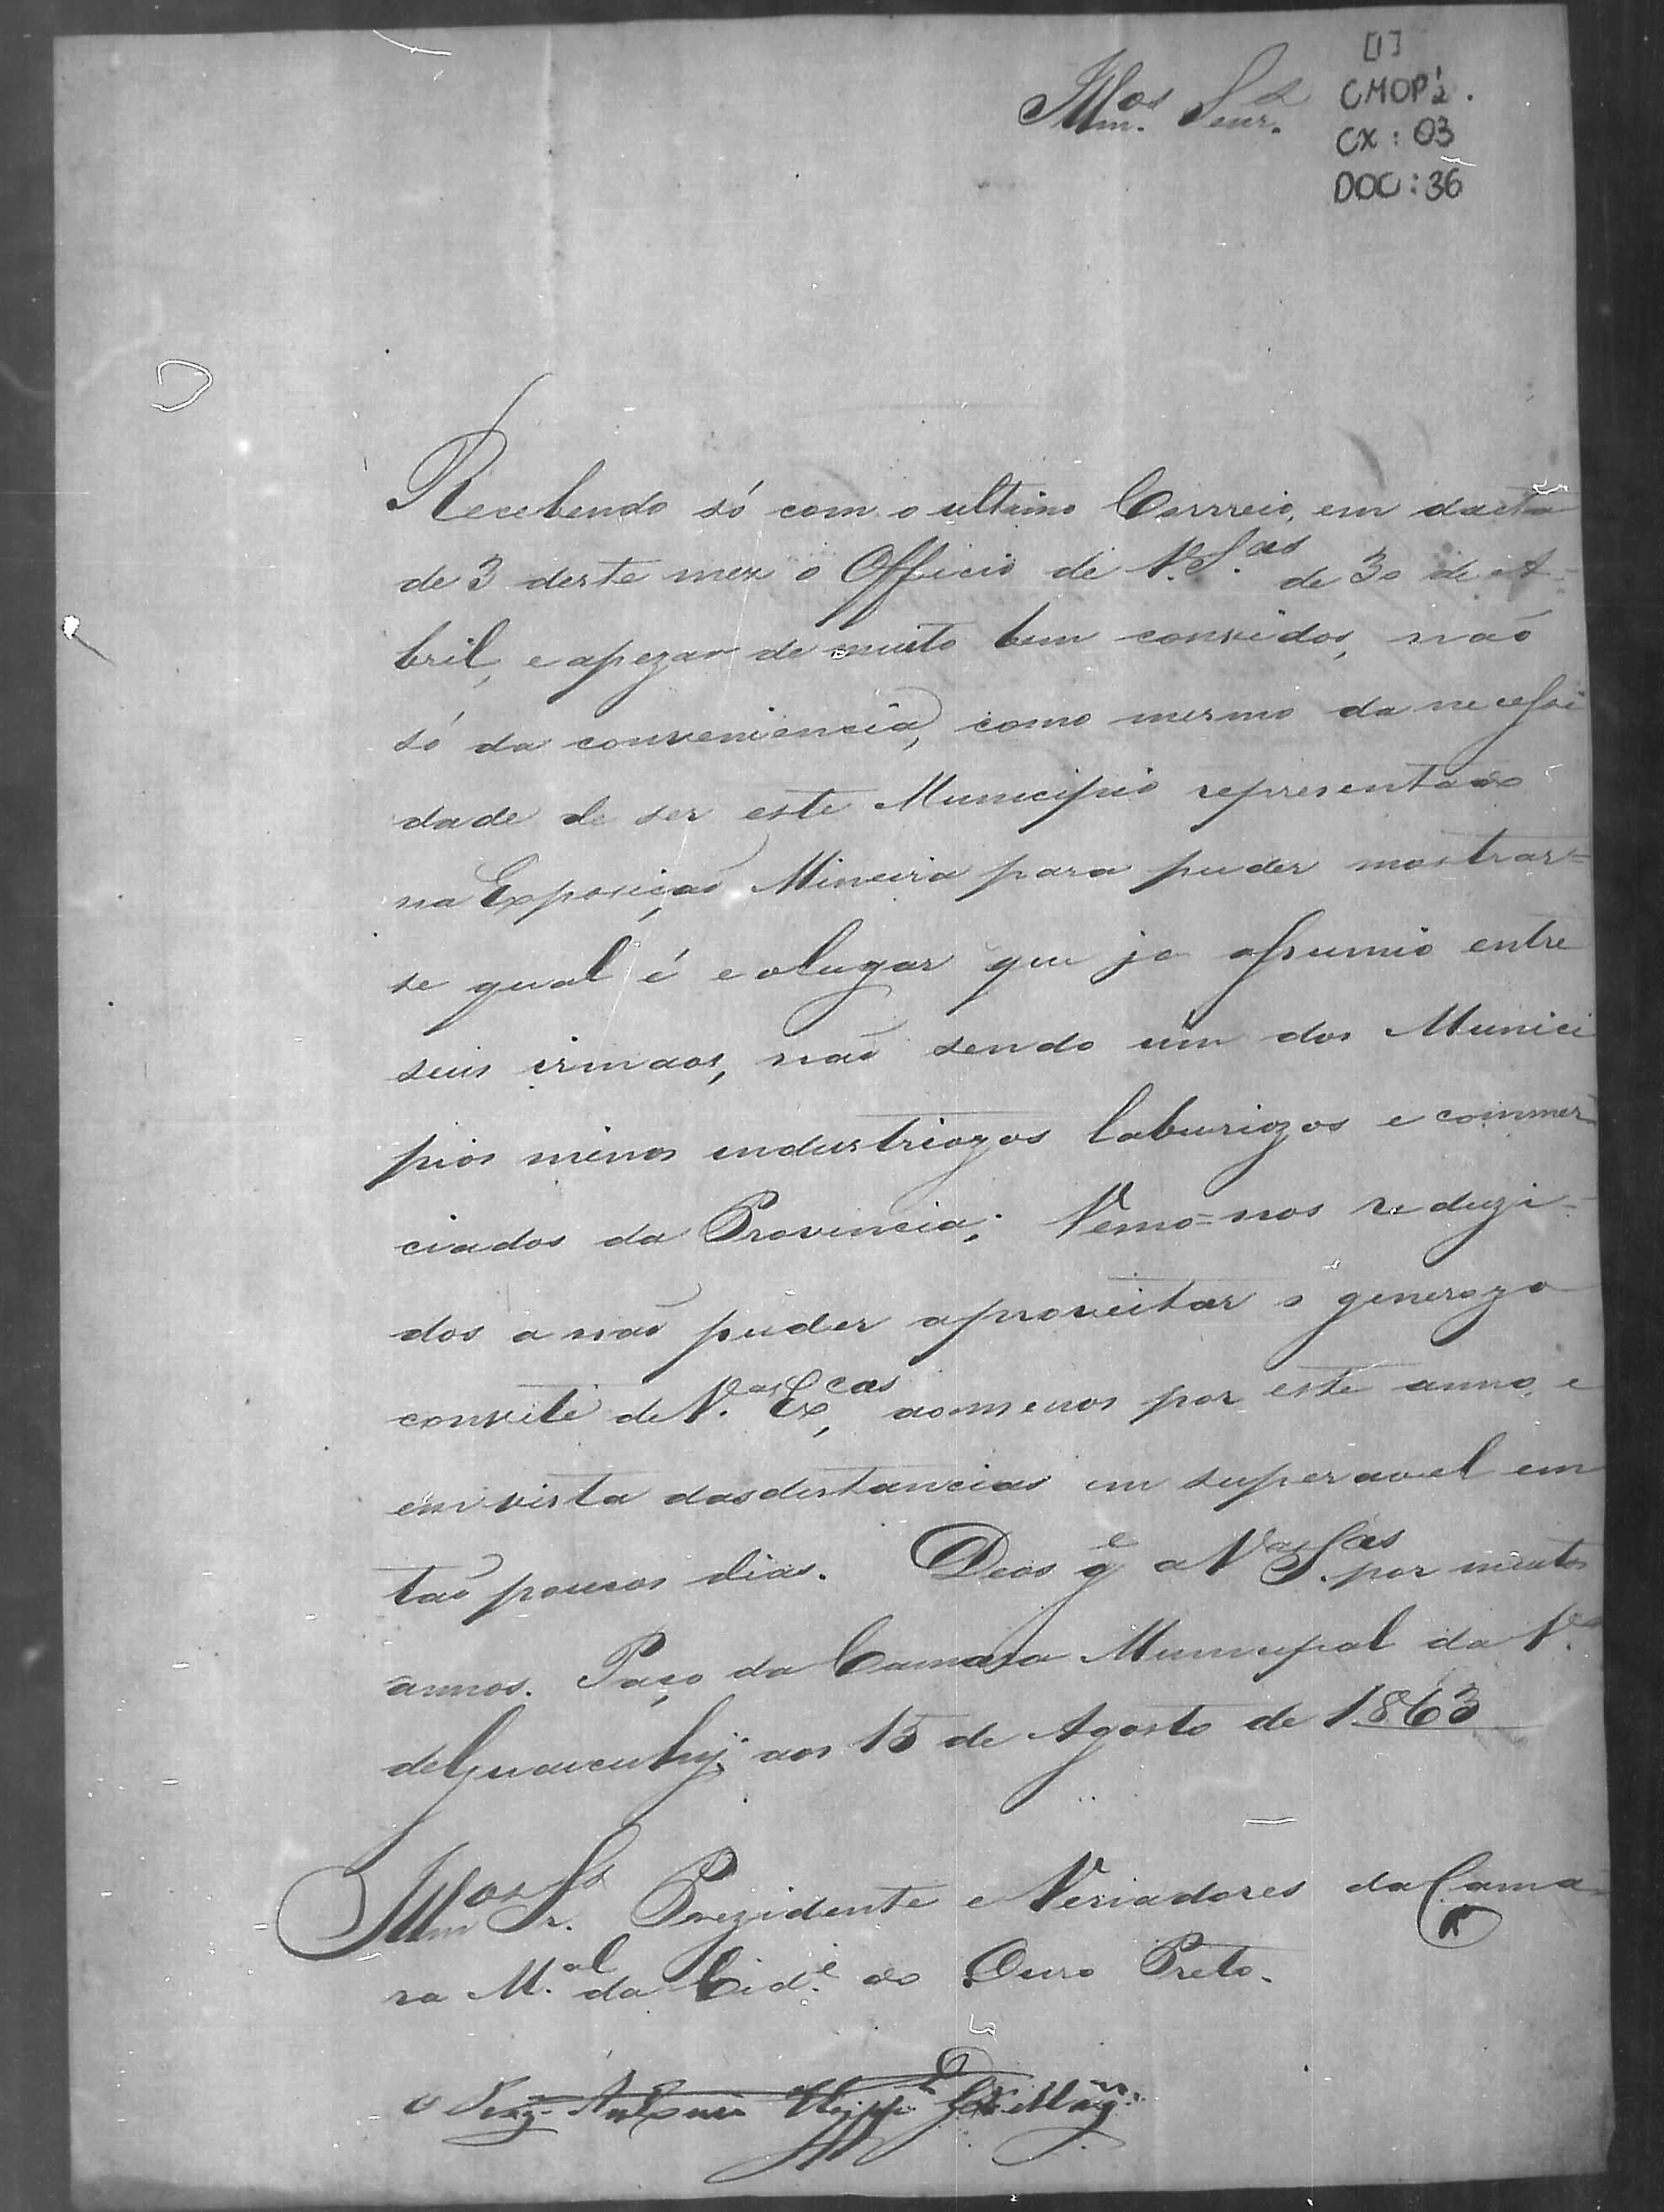 [1]
CMOP2.
CX: 03
DOC: 36
Illm.os Senr.s
Recebendo só com o ultimo Corrreio, em dacta
de 3 deste mez o Officio de V.S.as de 30 de A-
bril, e apezar de muito bem convidos, não
só da conveniencia, como mesmo da necessi
dade de ser este Municipio representado
na Exposição Mineira para puder mostrar=
se qual é e o lugar que ja assumio entre
seus irmaos, não sendo um dos Munici
pios menos industriozos laburiozos e commer
ciados da Provincia; Vemo=nos reduzi-
dos a não puder aproveitar o generozo
convite de V.as Ex.cas, ao menos por este anno, e
em vista das distancias in superavel em
tão poucos dias. Deos g.e a V.as S.as por muitos
annos. Paço da Camara Municipal da V.a
de Guaicuhy aos 15 de Agosto de 1863
Illm.os Sr.s Prezidente e Veriadores da Cama-
ra M.al da Cid.e do Ouro Preto.
Antonio